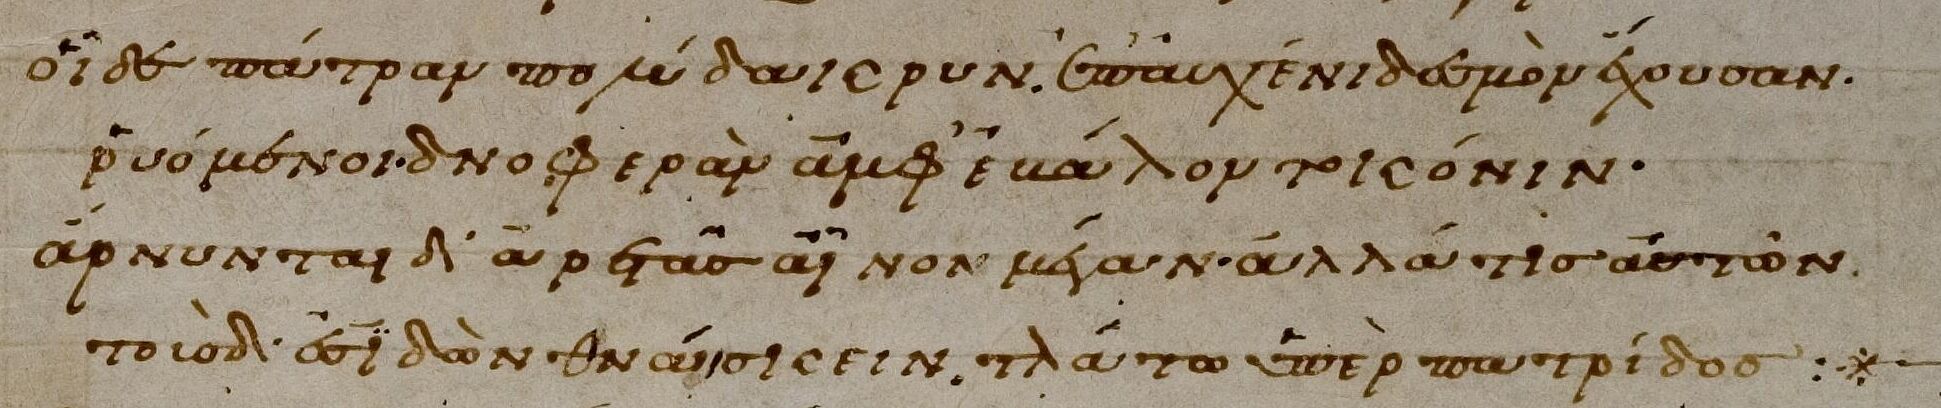 οἵδε πάτραν πολύδακρυν ὑπ' αὐχένι δεσμὸν ἔχουσαν.
ῥυόμενοι· δνοφερὰν ἀμφεβάλοντο κόνιν·
ἄρνυνται δ' ἀρετᾶς αἶνον μέγαν· ἀλλά τις ἀστῶν
τούσδ' ἐσιδὼν θνάισκειν. τλάτω ὑπὲρ πατρίδος :*